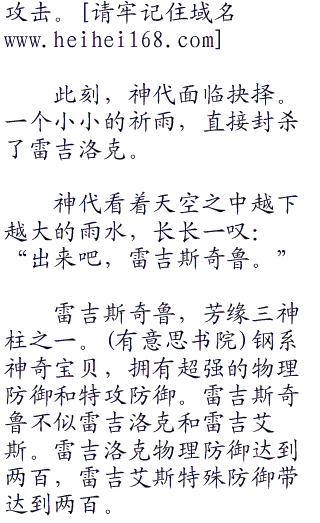 攻击。[请牢记住域名
www.heihei168.com]
此刻，神代面临抉择。
一个小小的祈雨，直接封杀
了雷吉洛克。
神代看着天空之中越下
越大的雨水，长长一叹：
“出来吧，雷吉斯奇鲁。”
雷吉斯奇鲁，芳缘三神
柱之一。(有意思书院)钢系
神奇宝贝，拥有超强的物理
防御和特攻防御。雷吉斯奇
鲁不似雷吉洛克和雷吉艾
斯。雷吉洛克物理防御达到
两百，雷吉艾斯特殊防御带
达到两百。